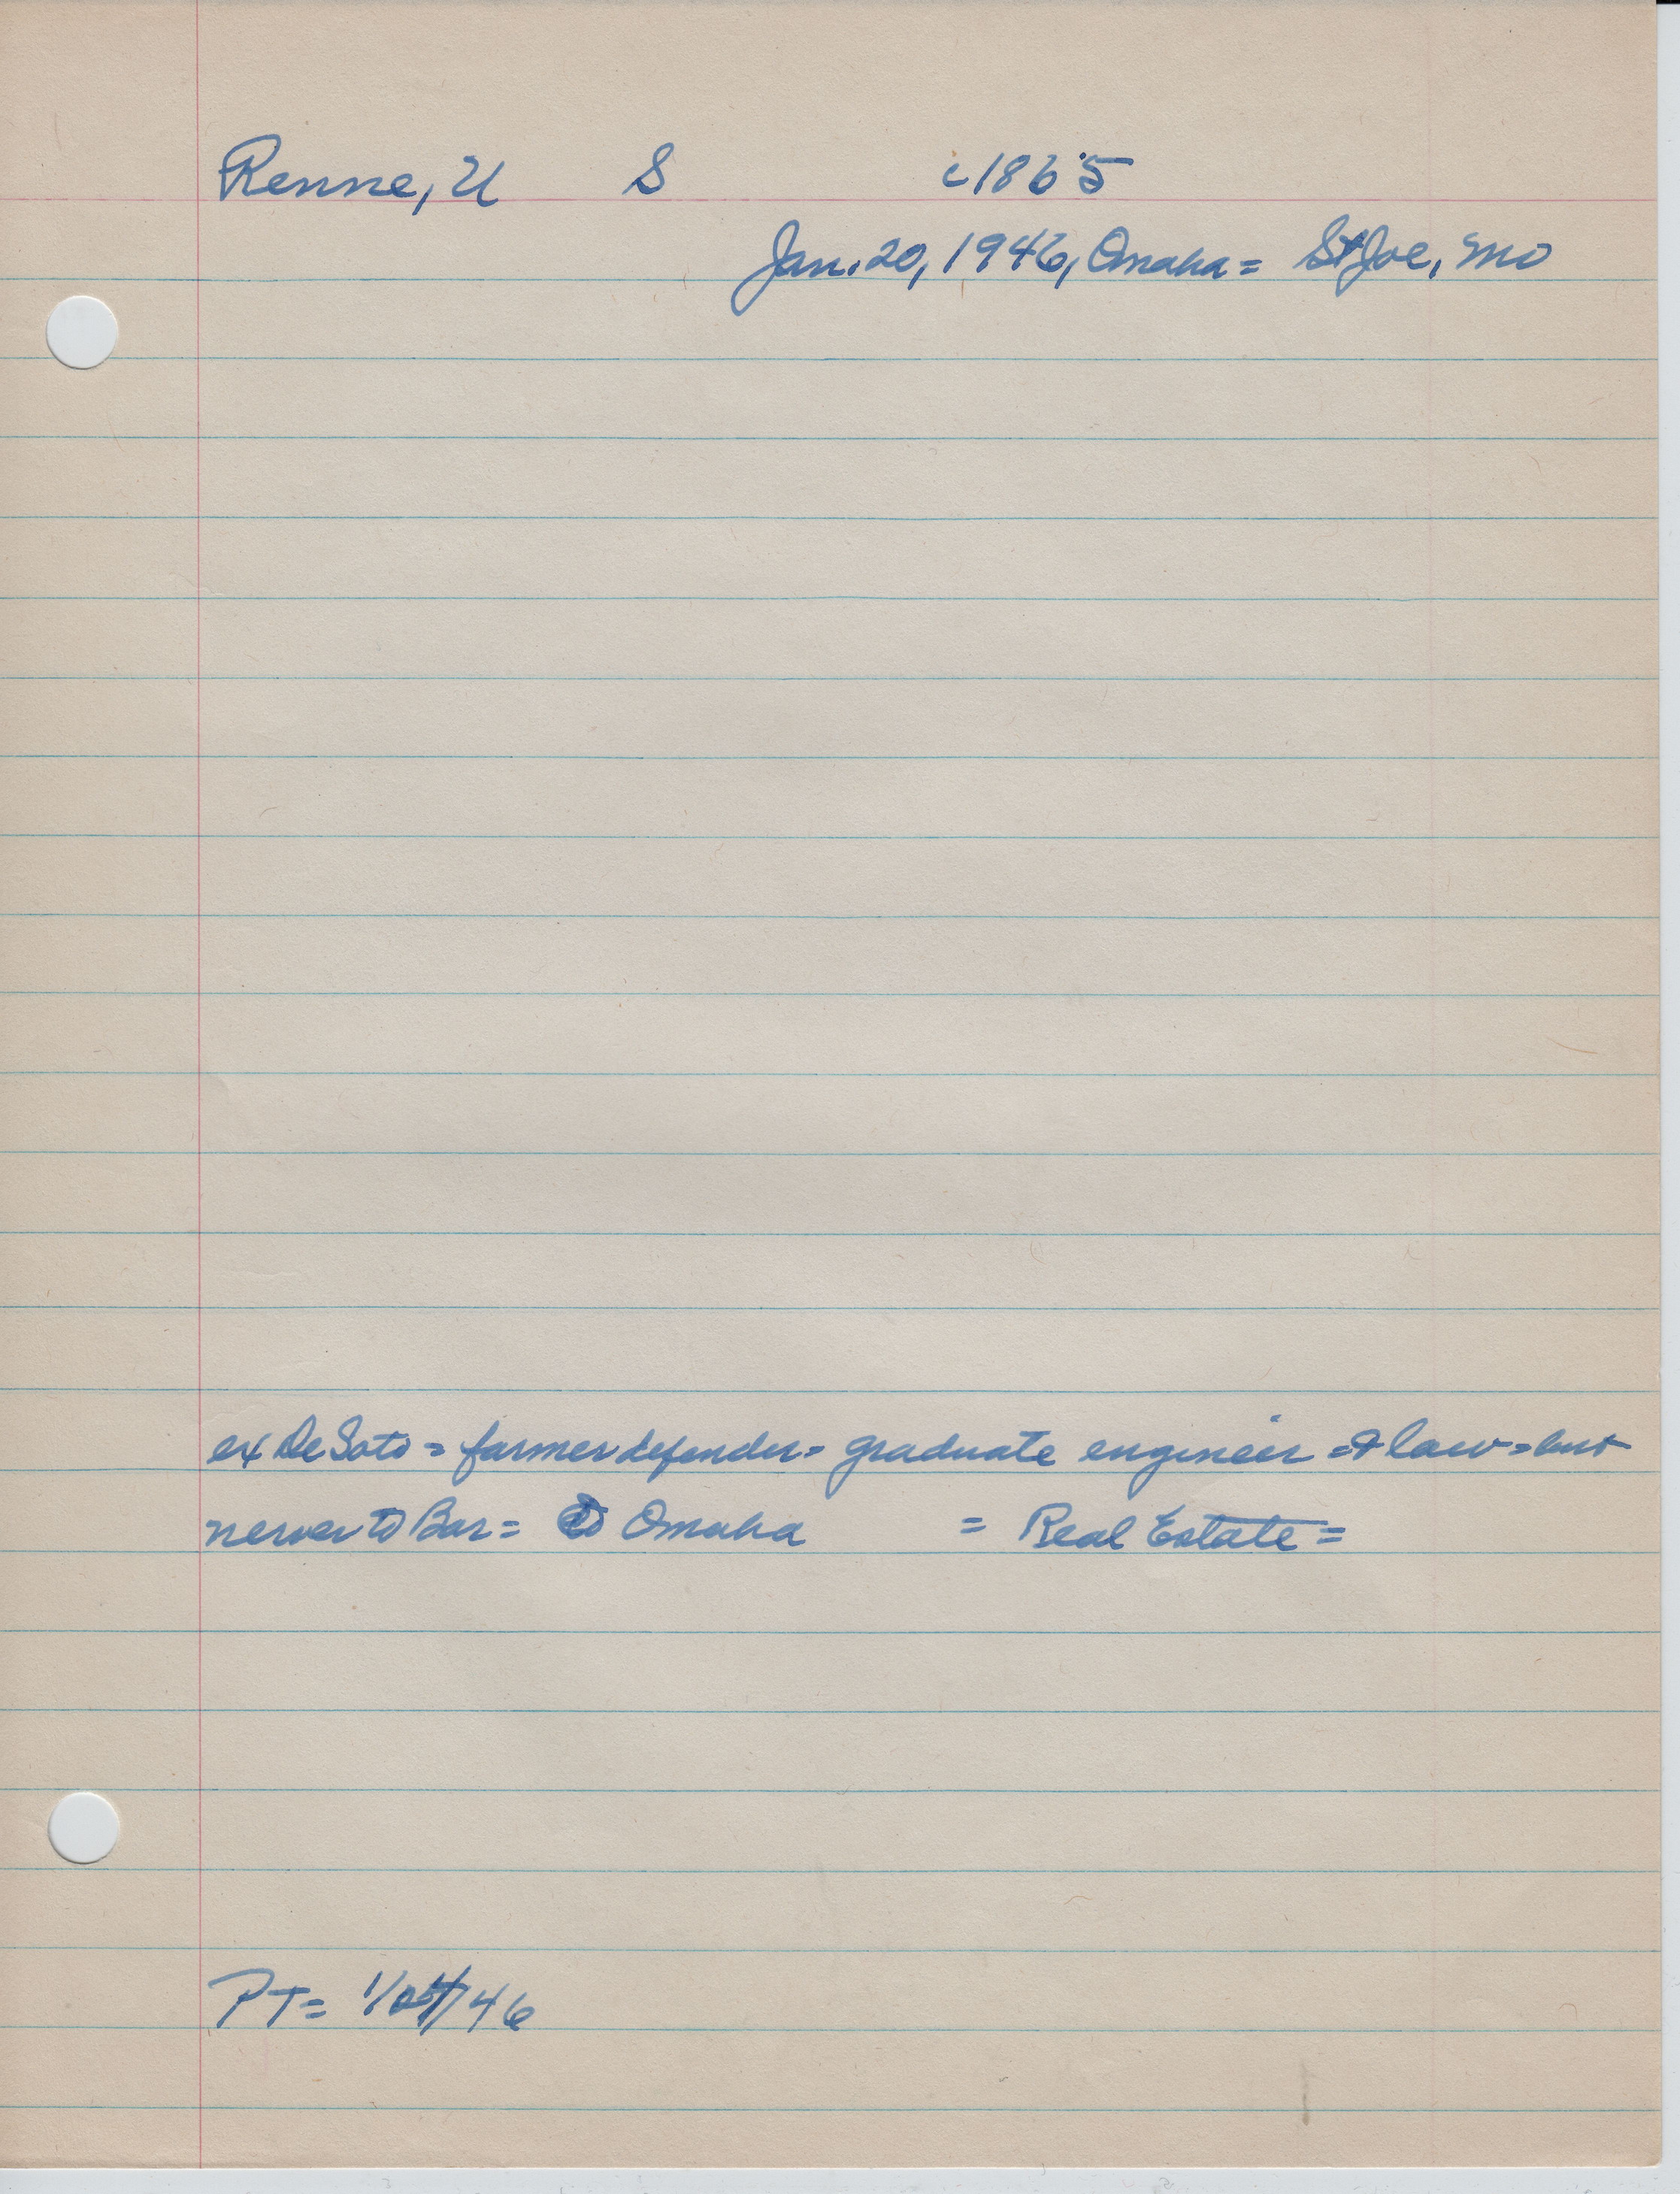 Renne, U S c1865
Jan. 20, 1946, Omaha = St Joe, Mo
ex De Soto = farmer defender = graduate engineer = & law = but
never to Bar = to Omaha = Real Estate =
PT = /46